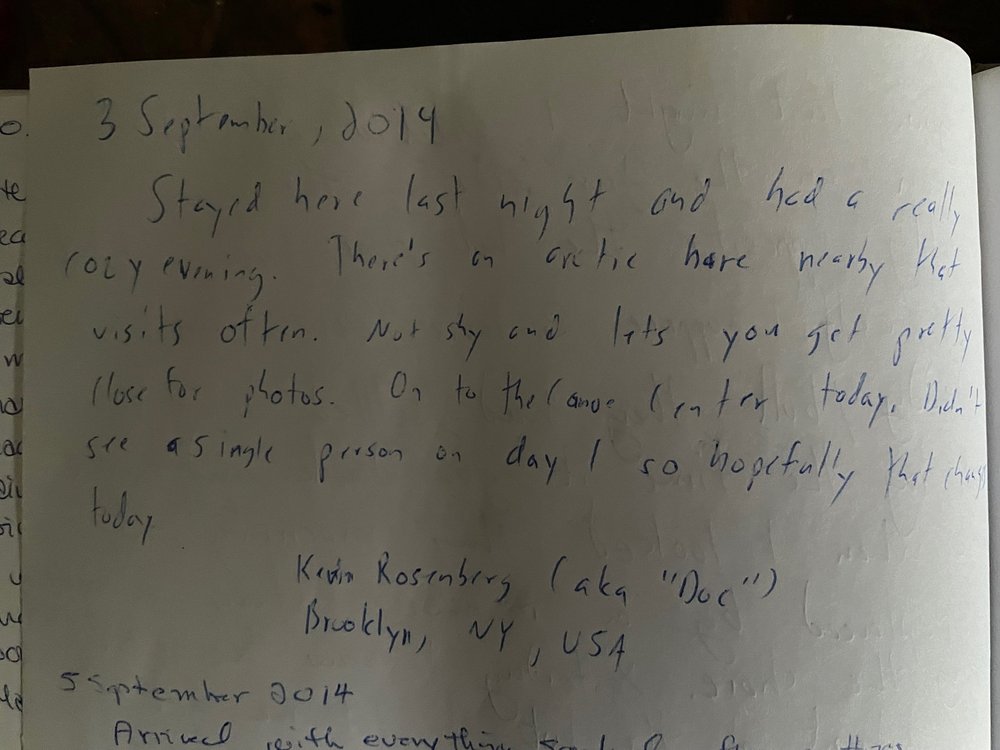 3 September, 2014
Stayed here last night and had a really
cozy evening. There's an arctic hare nearby that
visits often. Not shy and lets you get pretty
close for photos. On to the Canoe Center today. Didn't
see a single person on day 1 so hopefully that changes
today
Kevin Rosenberg (aka "Doc")
Brooklyn, NY, USA
5 September 2014
Arrived with everything